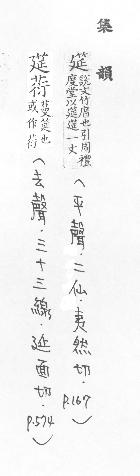 集韻
筵 說文竹席也引周禮度堂以筵筵一丈 〈平聲·二仙·夷然切·p.167〉
筵䓂 蔓筵也或作䓂 〈去聲·三十三線·延面切·p.574〉